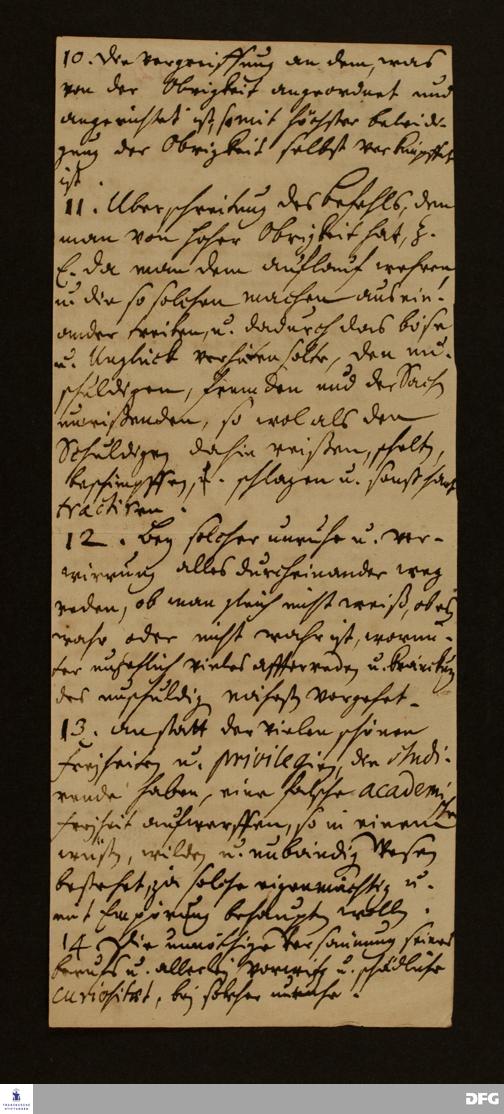 10. Die vergreiffung an dem, was
von der Obrigkeit angeordnet und
angerichtet ist, somit höchster beleidi-
gung der Obrigkeit selbst verknüpffet
ist.
11. Uberschreitung des befehls, den
man von hoher Obrigkeit hat, z.
E. da man dem aufflauf wehren,
u. die so solchen machen ausein-
ander treiben, u. dadurch das böse
u. Unglück verhüten solte, den un-
schuldigen, fremden und der Sach
unwißenden, so wol als den
Schuldigen dahin reißen, schelten,
beschimpffen, schlagen u. sonst hart
tractiren.
12. bey solcher unruhe u. ver-
wirrung alles durcheinander weg
reden, ob man gleich nicht weiß, ob es
wahr oder nicht wahr ist, worun-
ter unzehlich vieles affterreden u. kränckung
des unschuldigen nächsten vorgehet.
13. anstatt der vielen schönen
Freyheiten u. privilegien, die studi-
rende haben, eine falsche academische
freyheit auffwerffen, so in einem
wüsten, wilden u. unbändigen Wesen
bestehet, ja solche eigenmächtig u.
mit Empörung behaupten wollen.
14 Die unnöthige Versäumung seines
beruffs u. allerley vorwitz u. schädliche
curiositæt, bey solcher unruhe.
TRANSCRIPT
DFG